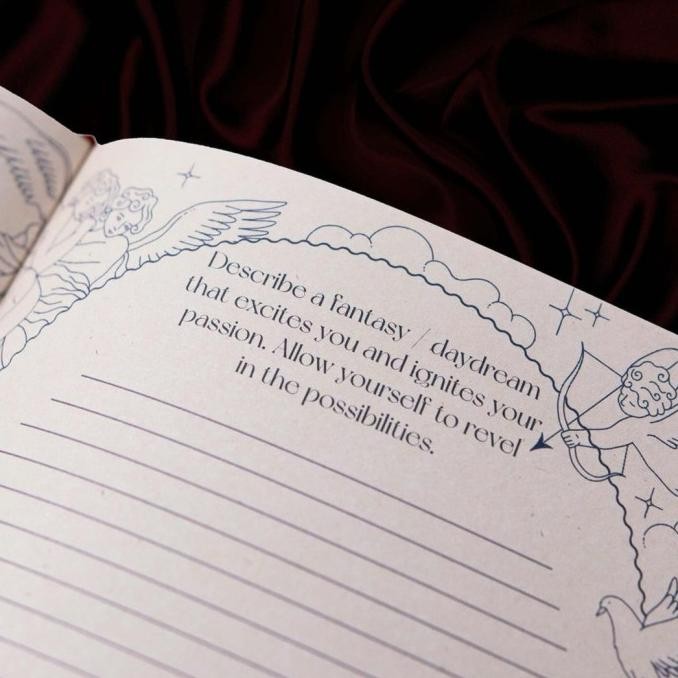 Describe a fantasy / daydream
that excites you and ignites your
passion. Allow yourself to revel
in the possibilities.